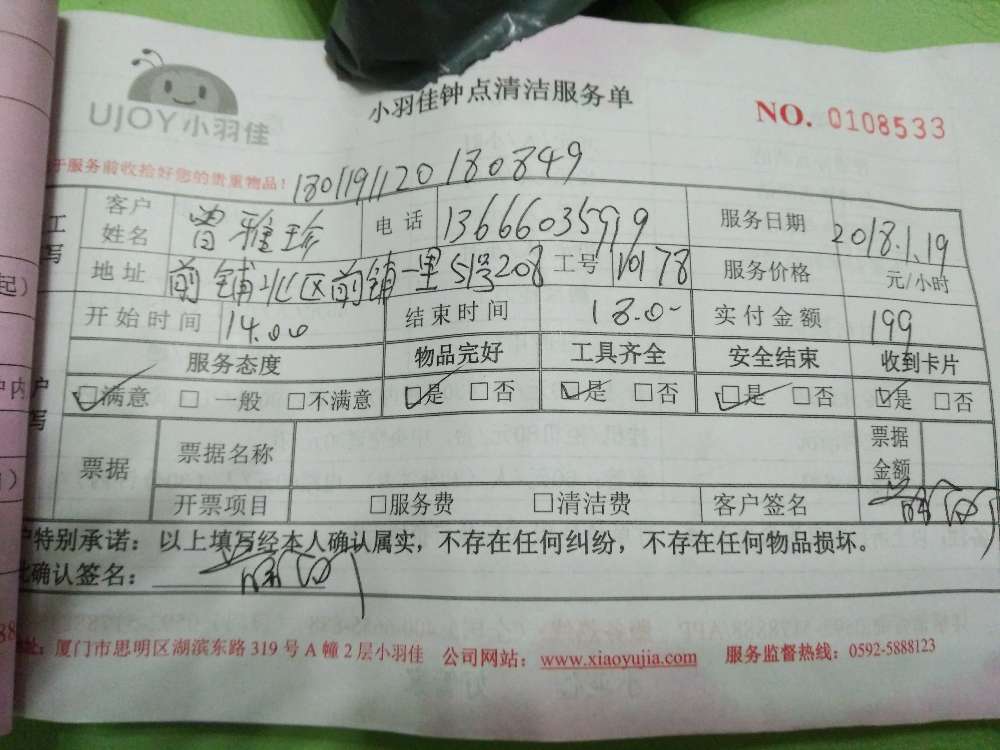 UJOY小羽佳
小羽佳钟点清洁服务单
NO. 0108533
于服务前收拾好您的贵重物品！
1801191120180849
工 客户姓名 曾雅珍 电话 13666035999 服务日期 2018.1.19
写 地址 前铺北区前铺一里51号208 工号 10178 服务价格 元/小时
开始时间 14.00 结束时间 18.0 实付金额 199
服务态度 物品完好 工具齐全 安全结束 收到卡片
户 □满意 □一般 □不满意 □是 □否 □是 □否 □是 □否 □是 □否
写 票据 票据名称 票据金额
开票项目 □服务费 □清洁费 客户签名
户特别承诺：以上填写经本人确认属实，不存在任何纠纷，不存在任何物品损坏。
确认签名：
址：厦门市思明区湖滨东路319号A幢2层小羽佳 公司网站：www.xiaoyujia.com 服务监督热线：0592-5888123